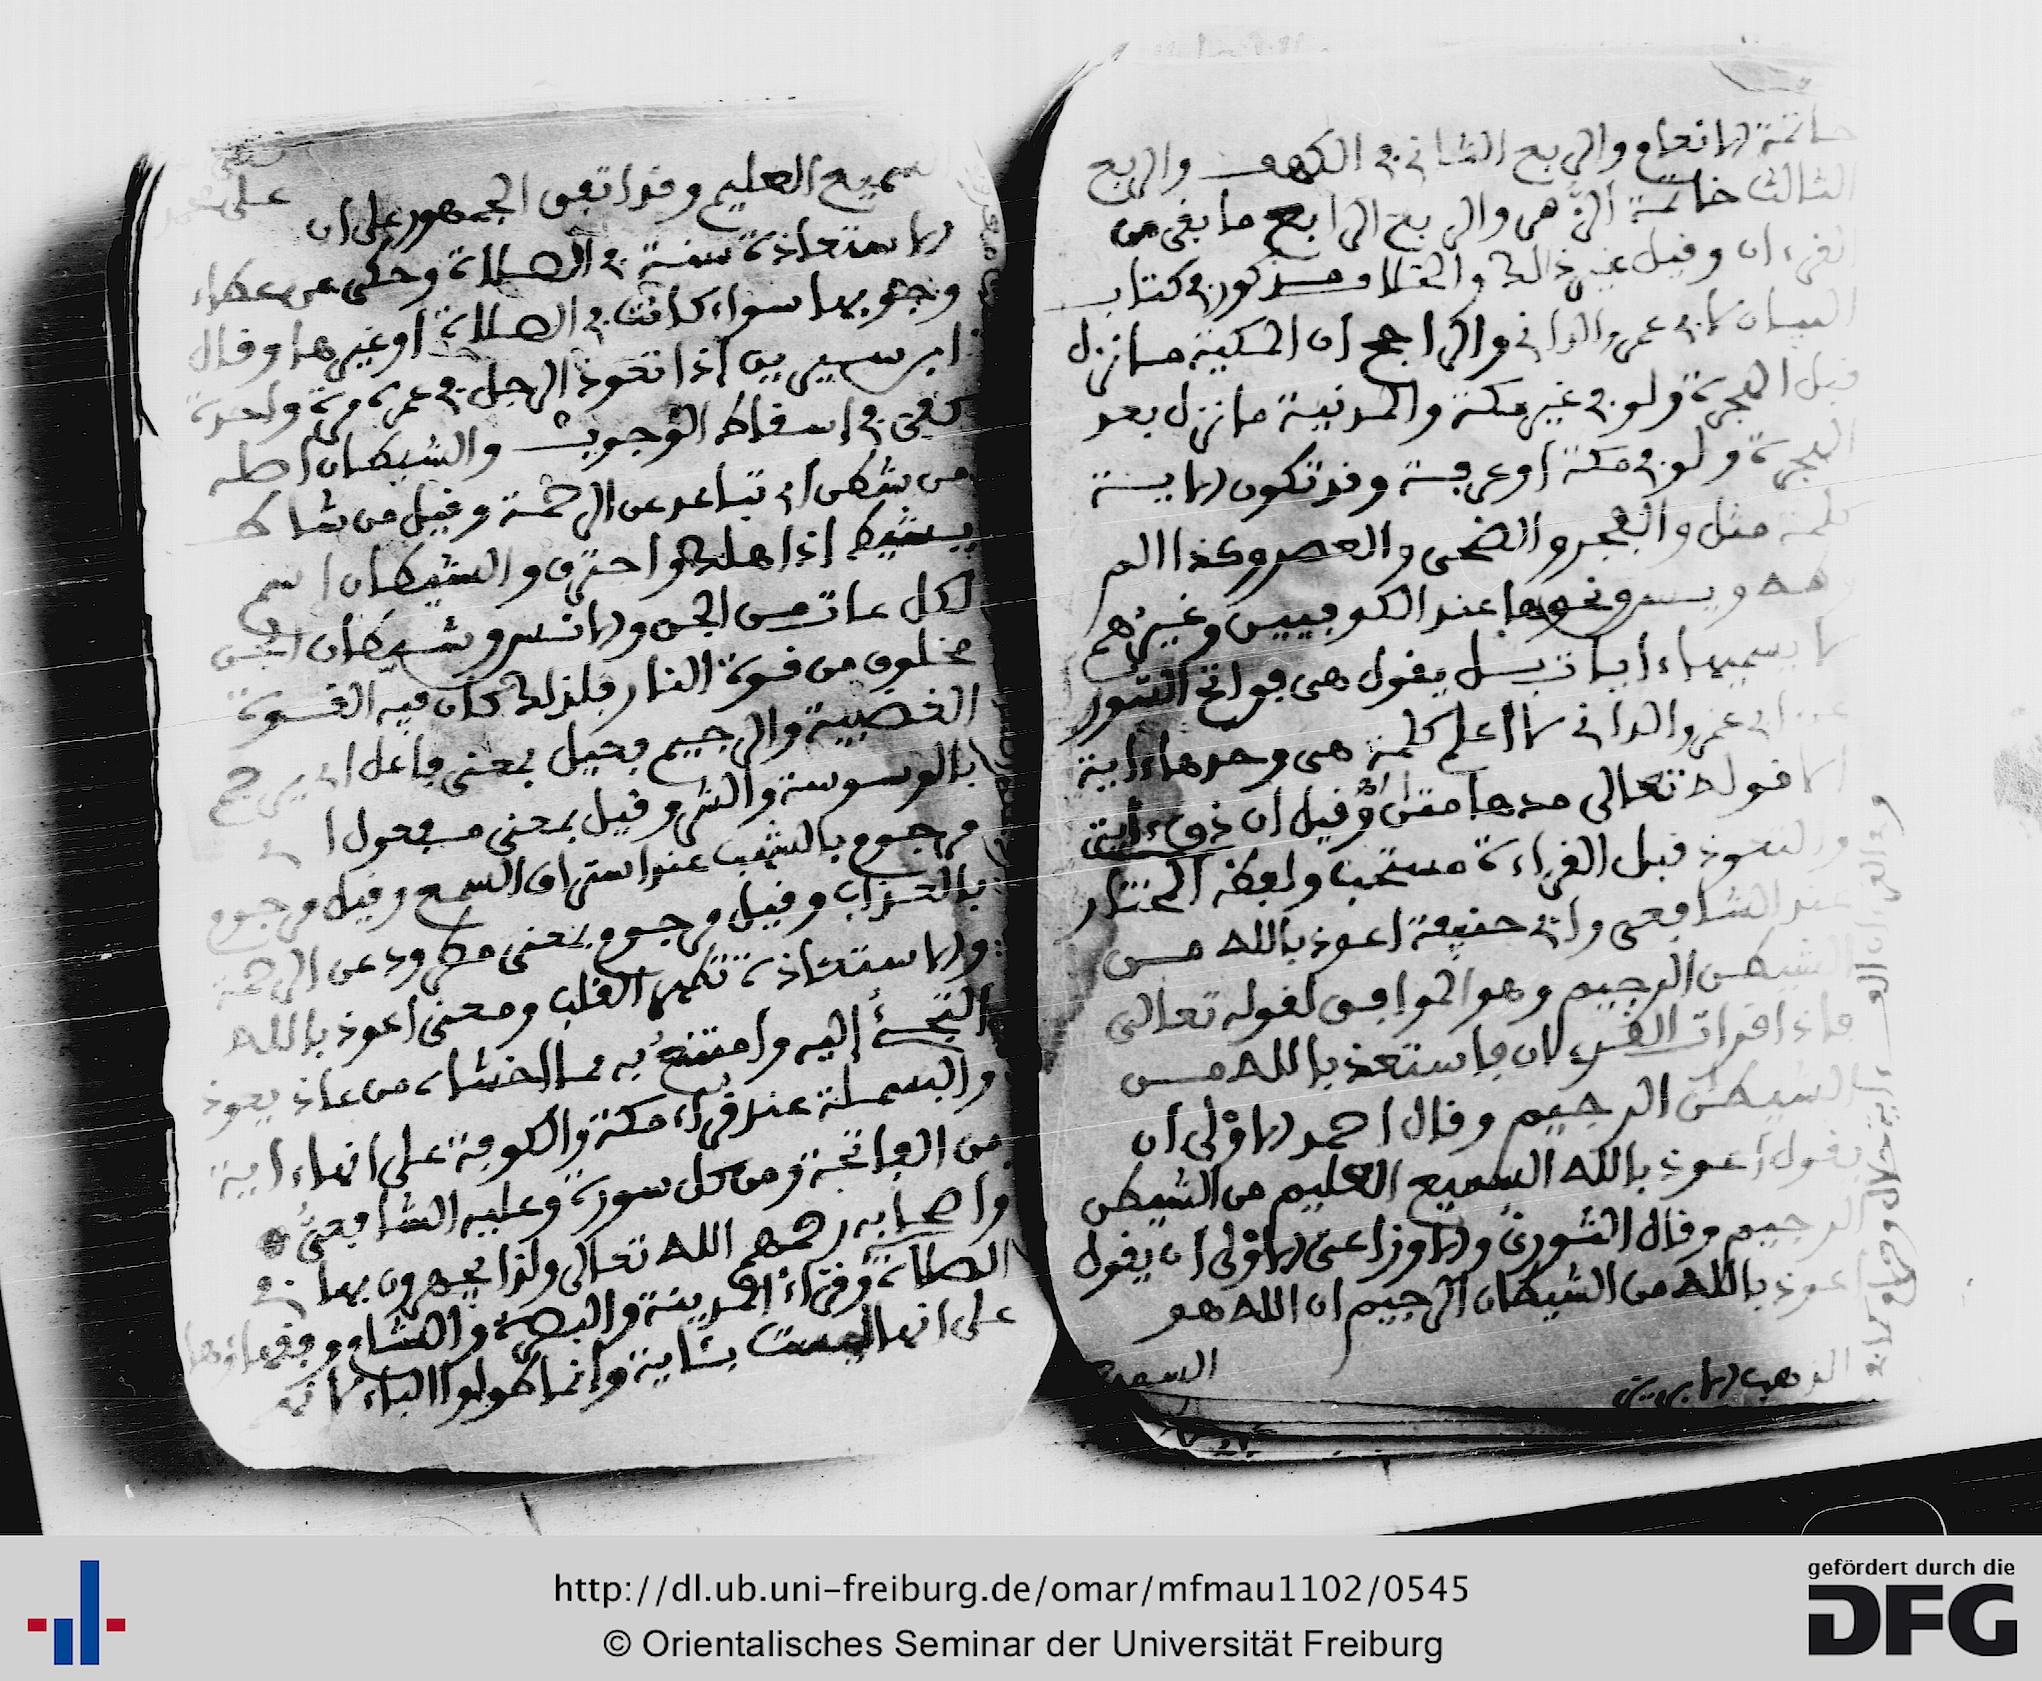 خاتمة الانعام والربع الثاني في الكهف والربع
الثالث خاتمة الزمر والربع الرابع ما بقي من
القرءان وقيل غير ذالك والخلاف مذكور في كتاب
البيان لابي عمرو الداني والراجح ان المكية ما نزل
قبل الهجرة ولو في غير مكة والمدنية ما نزل بعد
الهجرة ولو في مكة او عرفة وقد تكون الاية
كلمة مثل والفجر والضحى والعصر وكذا الم
وطه ويس ونحوها عند الكوفيين وغيرهم
لا يسميها ءايات بل يقول هي فواتح السور
عن ابي عمرو الداني لا اعلم كلمة هي وحدها ءاية
الا قوله تعالى مدهامتان وقيل ان
والتعوذ قبل القراءة مستحب ولفظه المختار
عند الشافعي وابي حنيفة اعوذ بالله من
الشيطن الرجيم وهو الموافق لقوله تعالى
فاذا قرات القرءان فاستعذ بالله من
الشيطن الرجيم وقال احمد الاولى ان
يقول اعوذ بالله السميع العليم من الشيطن
الرجيم وقال الثوري والاوزاعي الاولى ان يقول
اعوذ بالله من الشيطان الرجيم ان الله هو
السميع
السميع العليم وقد اتفق الجمهور على ان
الاستعاذة سنة في الصلاة وحكي عن عطاء
وجوبها سواء كانت في الصلاة او غيرها وقال
ابن سيرين اذا تعوذ الرجل في عمره مرة واحدة
كفى في اسقاط الوجوب والشيطان اصله
من شطن اي تباعد عن الرحمة وقيل من شاط
يشيط اذا هلك واحترق والشيطان اسم
لكل عات من الجن والانس وشيطان الجن
مخلوق من قوة النار فلذلك كان فيه القوة
الغضبية والرجيم فعيل بمعنى فاعل اي يرجم
بالوسوسة والشر وقيل بمعنى مفعول اي
مرجوم بالشهب عند استراق السمع وقيل مرجوم
بالعذاب وقيل مرجوم بمعنى مطرود عن الرحمة
والاستعاذة تطهر القلب ومعنى اعوذ بالله
التجئ اليه وامتنع به مما اخشاه من عاذ يعوذ
والبسملة عند قراء مكة والكوفة على انها ءاية
من الفاتحة ومن كل سورة وعليه الشافعي
واصحابه رحمهم الله تعالى ولذا يجهرون بها في
الصلاة وقراء المدينة والبصرة والشام وفقهاؤها
على انها ليست بئاية وانما طولوا الباء لانه
http://dl.ub.uni-freiburg.de/omar/mfmau1102/0545
© Orientalisches Seminar der Universität Freiburg
gefördert durch die
DFG